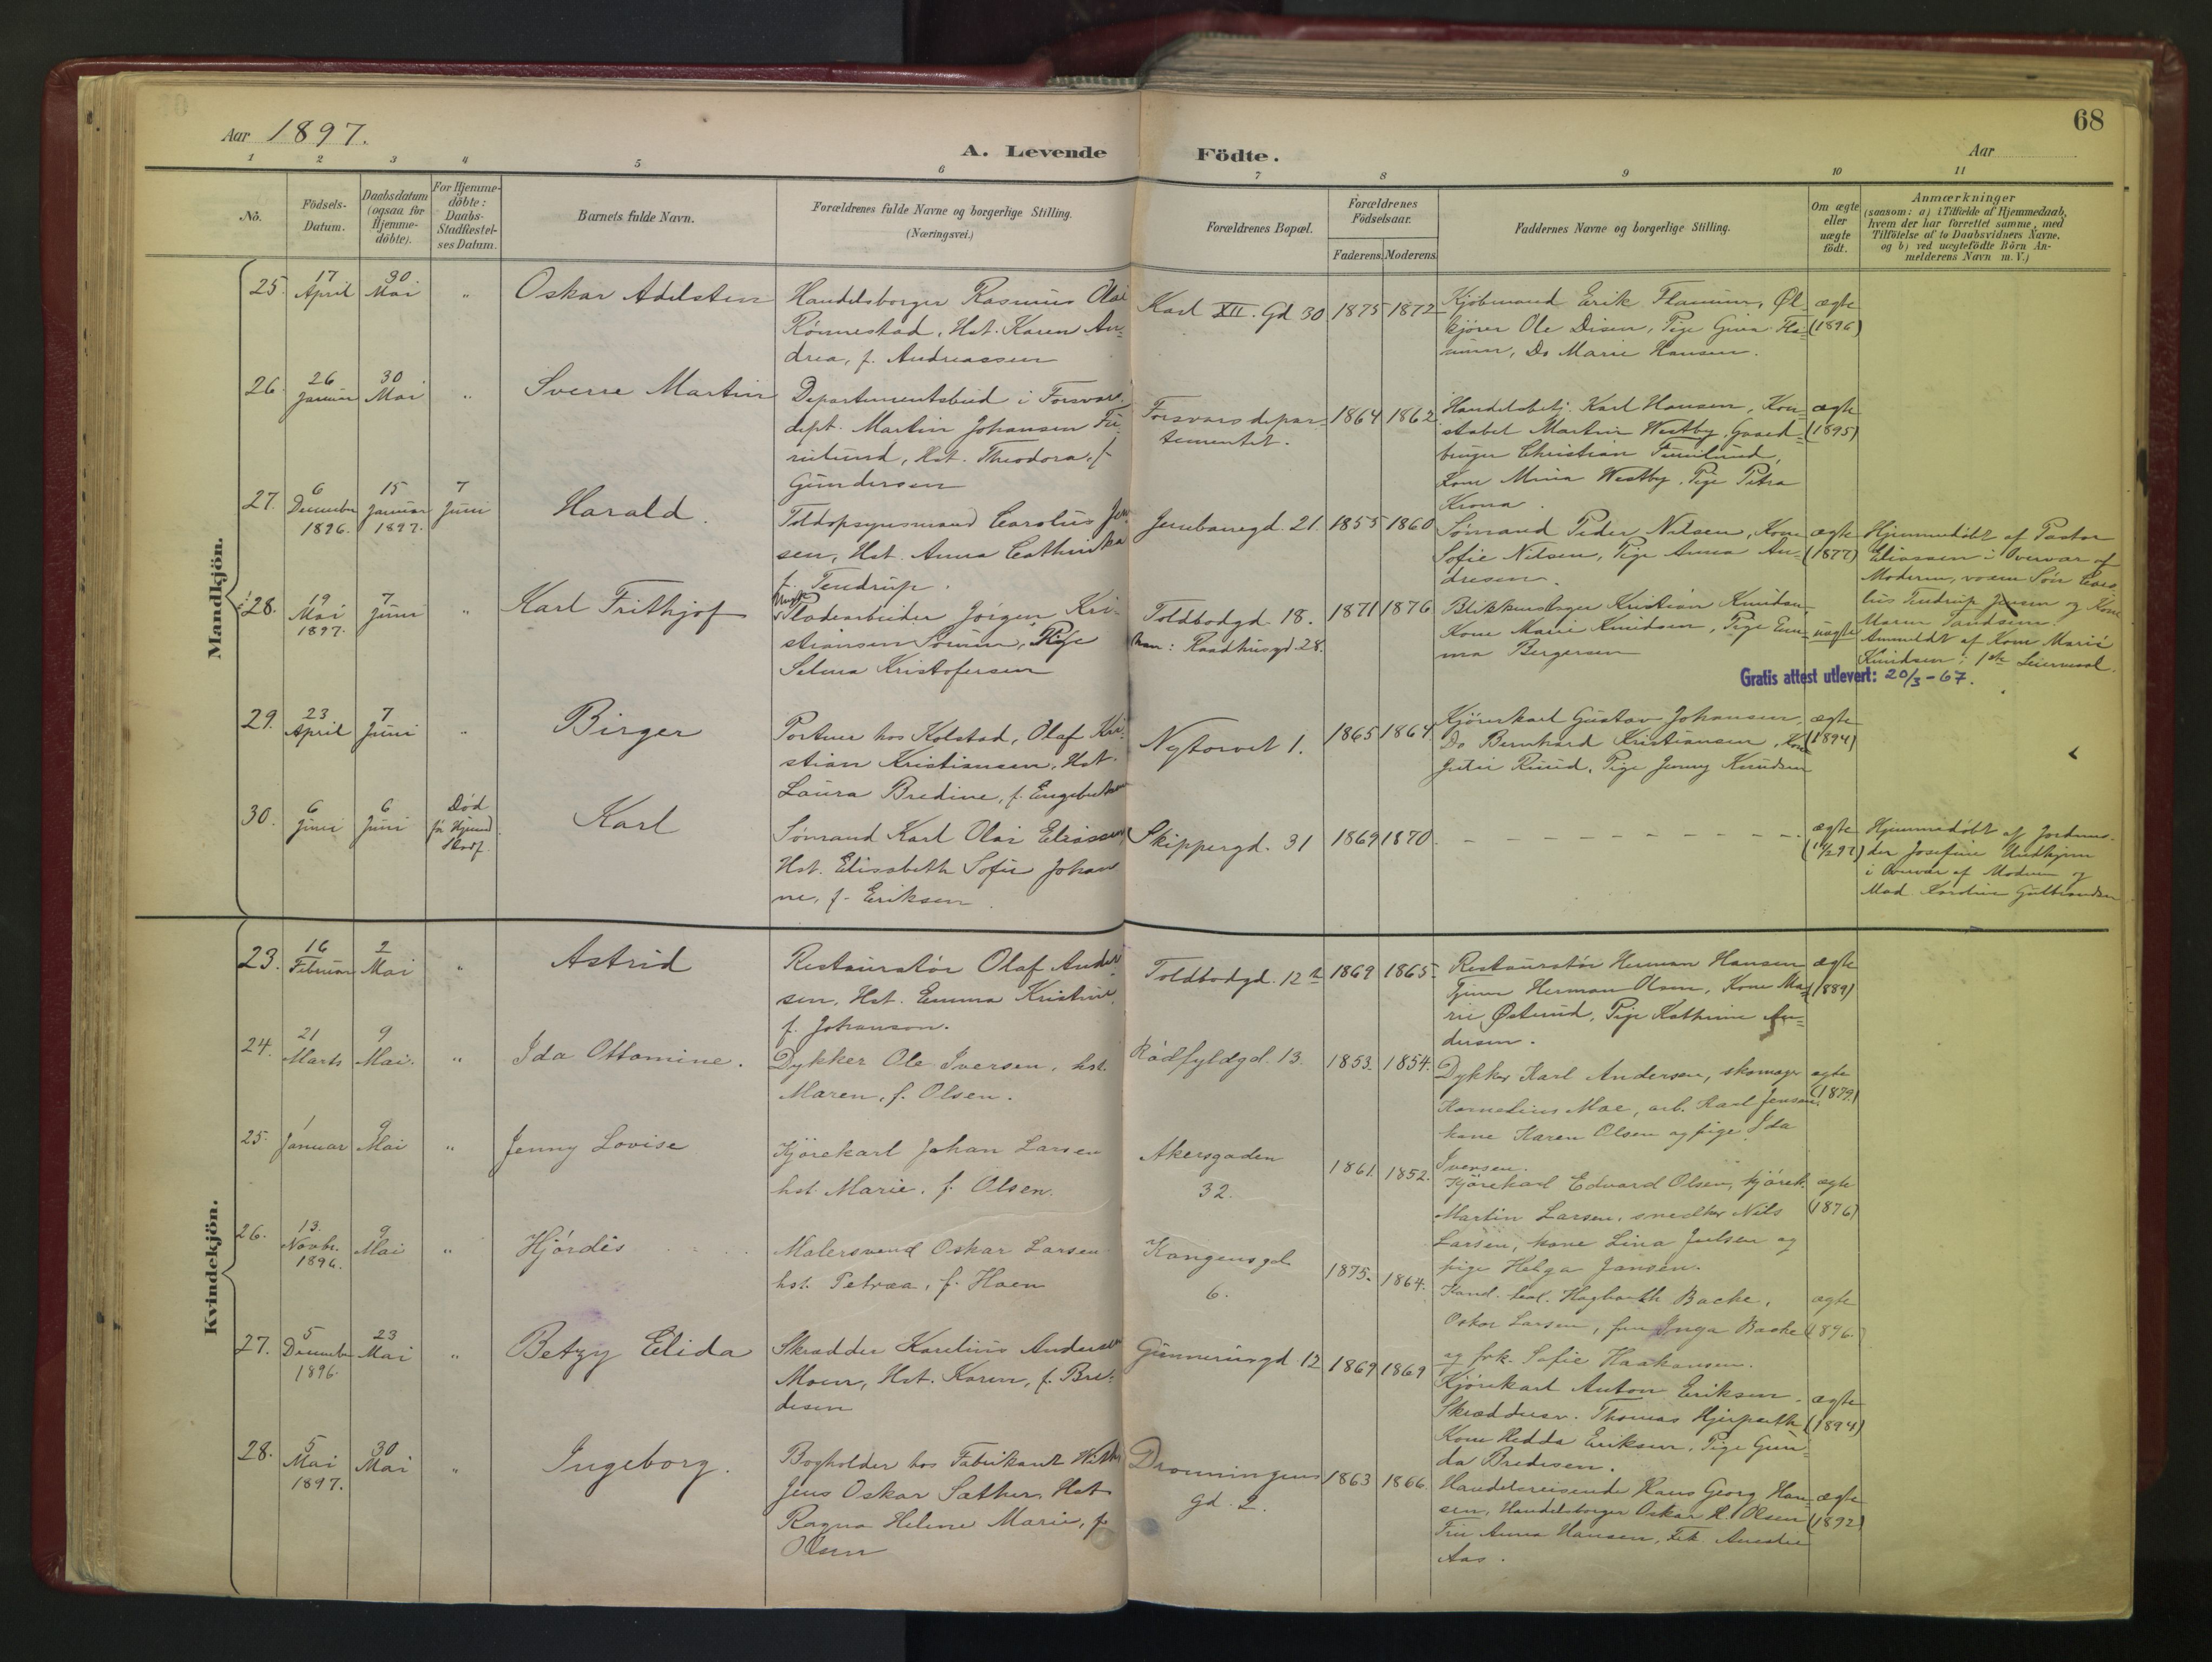 68
Aar 1897.
A. Levende Födte.
Aar
1 2 3 4 5 6 7 8 9 10 11
No.
Födsels-
Datum.
Daabsdatum
(ogsaa for
Hjemme-
döbte).
For Hjemme-
döbte:
Daabs-
Stadfæstel-
ses Datum.
Barnets fulde Navn.
Forældrenes fulde Navne og borgerlige Stilling.
(Næringsvei.)
Forældrenes Bopæl.
Forældrenes
Födselsaar.
Faderens. Moderens.
Faddernes Navne og borgerlige Stilling.
Om ægte
eller
uægte
födt.
Anmærkninger
(saasom: a) i Tilfælde af Hjemmedaab,
hvem der har forrettet samme, med
Tilföielse af to Daabsvidners Navne,
og b) ved uægtefödte Börn An-
melderens Navn m. V.)
Mandkjön.
25.
17
April
30
Mai
"
Oskar Adelsten
Handelsborger Rasmus Olai
Rönnestad, Hst. Karen An-
drea, f. Andreassen
Karl XII. Gd 30
1875 1872
Kjöbmand Erik Flamum, Øl-
kjörer Ole Disen, Pige
Do Marie Hansen.
ægte
(1896)
26.
26
Januar
30
Mai
"
Sverre Martin
Departementsbud i Forsvars-
dept. Martin Johansen Fu-
rulund, Hst. Theodora, f.
Gundersen
Forsvarsdepar-
tementet.
1864 1862
Handelsbetj. Karl Hansen, Kon-
stabel Martin Westby, Gaard-
bruger Christian Furulund,
Kone Mina Westby, Pige Petra
Krona.
ægte
(1895)
27.
6
December
1896.
15
Januar
1897.
7
Juni
Harald.
Toldopsynsmand Carolus Jen-
sen, Hst. Anna Cathrinka
f. Tendrup.
Jernbanegd. 21.
1855 1860
Sömand Peder Nilsen, Kone
Sofie Nilsen, Pige Anna An-
dresen.
ægte
(1877)
Hjemmedöbt af Pastor
Eliassen i Overvær af
Moderen, voxen Sön Caro-
lus Tendrup Jensen og Kone
Maren
28.
19
Mai
1897.
7
Juni
"
Karl Frithjof
Ungk.
Pladearbeider Jörgen Kri-
stiansen Sörum, Pige
Selma Kristofersen
Toldbodgd. 18.
han: Raadhusgd. 28.
1871 1876
Blikkenslager Kristian Knudsen
Kone Marie Knudsen, Pige Em-
ma Bergersen
uægte
Anmeldt af Kone Marie
Knudsen; 1ste Leiermaal.
Gratis attest utlevert: 20/3-67.
29.
23
April
7
Juni
"
Birger
Portner hos Kolstad, Olaf Kri-
stian Kristiansen, Hst.
Laura Bredine, f. Engebretsen
Nytorvet 1.
1865 1864
Kjörekarl Gustav Johansen,
Do Bernhard Kristiansen, Kone
Ruud, Pige Jenny Knudsen
ægte
(1894)
30.
6
Juni
6
Juni
Död
för Hjemd.
Stadf.
Karl
Sömand Karl Olai Eliassen,
Hst. Elisabeth Sofie Johan-
ne, f. Eriksen.
Skippergd. 31
1869 1870
ægte
Hjemmedöbt af Jordmo-
der Josefine
i Overvær af Moderen og
Mad. Karoline Gulbrandsen
Kvindekjön.
23.
16
Februar
2
Mai
"
Astrid
Restauratör Olaf Ander-
sen, Hst. Emma Kristine,
f. Johanson.
Toldbodgd. 12 a
1869 1865
Restauratör Herman Hansen
Tjener Herman Olsen, Kone Ma-
rie Østlund, Pige Kathrine An-
dersen.
ægte
(1889)
24.
21
Marts
9
Mai.
"
Ida Ottomine.
Dykker Ole Iversen, hst.
Maren, f. Olsen.
Rödfyldgd. 13.
1853. 1854.
Dykker Karl Andersen, skomager
Kornelius Moe, arb. Karl Jensen,
kone Karen Olsen og pige Ida
Iversen.
ægte
(1879.)
25.
1
Januar
9
Mai
"
Jenny Lovise
Kjörekarl Johan Larsen
hst. Marie, f. Olsen.
Akersgaden
32.
1861. 1852.
Kjörekarl Edvard Olsen, kjörek.
Martin Larsen, snedker Nils
Larsen, kone Lina Julsen og
pige Helga Jansen.
ægte
(1876)
26.
13.
Novbr.
1896.
9
Mai
"
Hjördis
Malersvend Oskar Larsen
hst. Petrea, f. Haen
Kongensgd.
6.
1875. 1864.
Kand. teol. Hagbarth Backe,
Oskar Larsen, fru Inga Backe
og frk. Sofie Haakonsen.
ægte
(1896.)
27.
5
December
1896.
23
Mai
"
Betzy Elida
Skrædder Karelius Andersen
Moen, Hst. Karen, f. Bre-
desen
Gunnerusgd 12
1869 1869
Kjörekarl Anton Eriksen,
Skræddersv. Thomas
Kone Hedda Eriksen, Pige Gun-
da Bredesen.
ægte
(1894)
28.
5
Mai
1897.
30
Mai
"
Ingeborg.
Bogholder hos Fabrikant
Jens Oskar Sæther, Hst.
Ragna Helene Marie, f.
Olsen
Dronningens
Gd. 2.
1863 1866.
Handelsreisende Hans Georg Han-
sen, Handelsborger Oskar Olsen
Fru Anna Hansen, Frk.
Aas.
ægte
(1892)